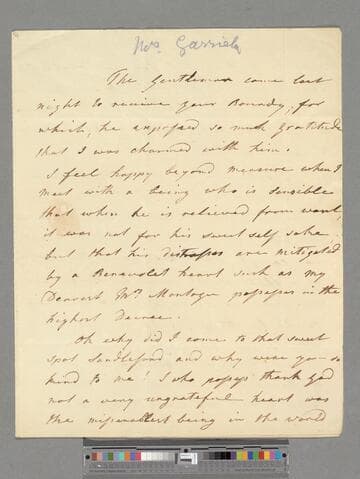 Mrs. Garrick
The Gentleman came last
night to receive your Bounty, for
which, he expressed so much gratitude
that I was charmed with him.
I feel happy beyond measure when I
meet with a being who is sensible
that when he is relieved from want,
it was not for his sweet self sake
but that his distresses are mitigated
by a Benevolent heart such as my
Dearest Mrs. Montagu possesses in the
highest Decree.
Oh why did I come to that sweet
spot Sandleford and why were you so
kind to me! I who possess thank god
not a very ungrateful heart was
the miserablest being in the world